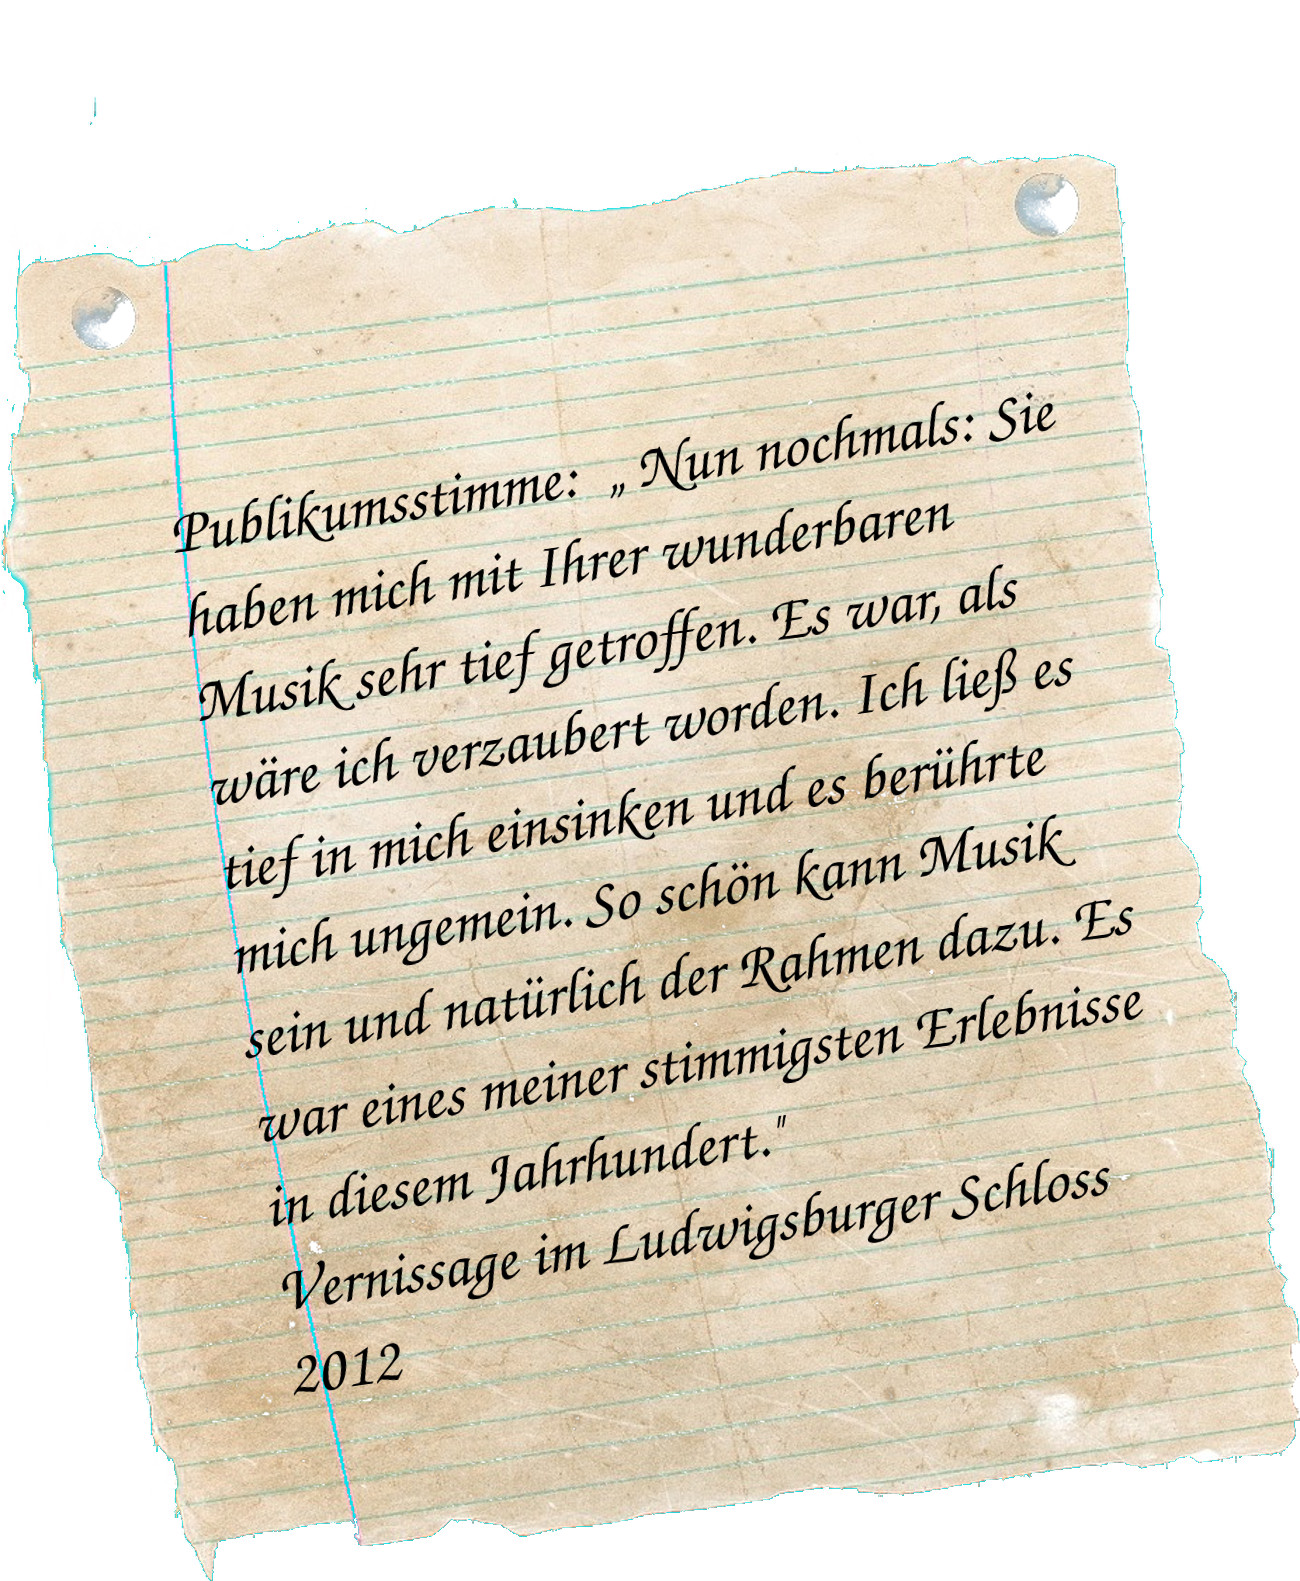 Publikumsstimme: „ Nun nochmals: Sie
haben mich mit Ihrer wunderbaren
Musik sehr tief getroffen. Es war, als
wäre ich verzaubert worden. Ich ließ es
tief in mich einsinken und es berührte
mich ungemein. So schön kann Musik
sein und natürlich der Rahmen dazu. Es
war eines meiner stimmigsten Erlebnisse
in diesem Jahrhundert."
Vernissage im Ludwigsburger Schloss
2012